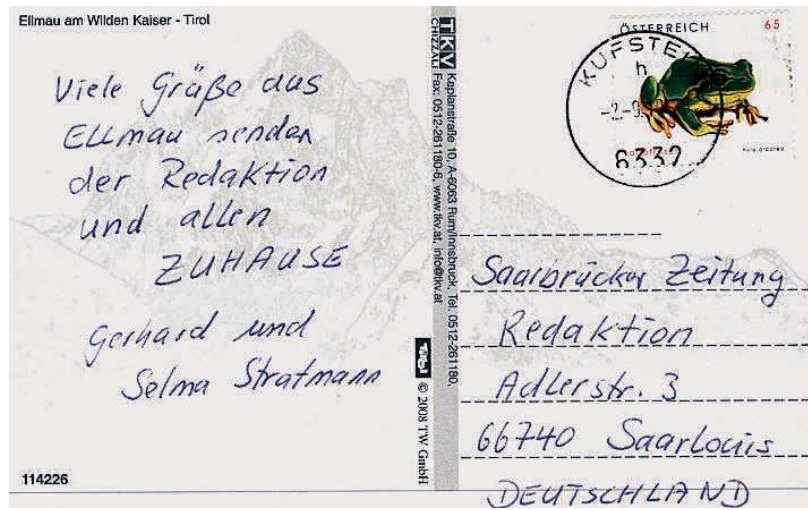 Ellmau am Wilden Kaiser - Tirol
Viele Grüße aus
Ellmau senden
der Redaktion
und allen
ZUHAUSE
Gerhard und
Selma Stratmann
114226
TKV
CHIZZALI
Kaplanstraße 10, A-6063 Rum/Innsbruck, Tel. 0512-261180,
Fax: 0512-261180-6, www.tkv.at, info@tkv.at
Tirol
© 2008 TW GmbH
ÖSTERREICH
65
KUFSTEIN
h
-2.-9.
6332
Saarbrücker Zeitung
Redaktion
Adlerstr. 3
66740 Saarlouis
DEUTSCHLAND